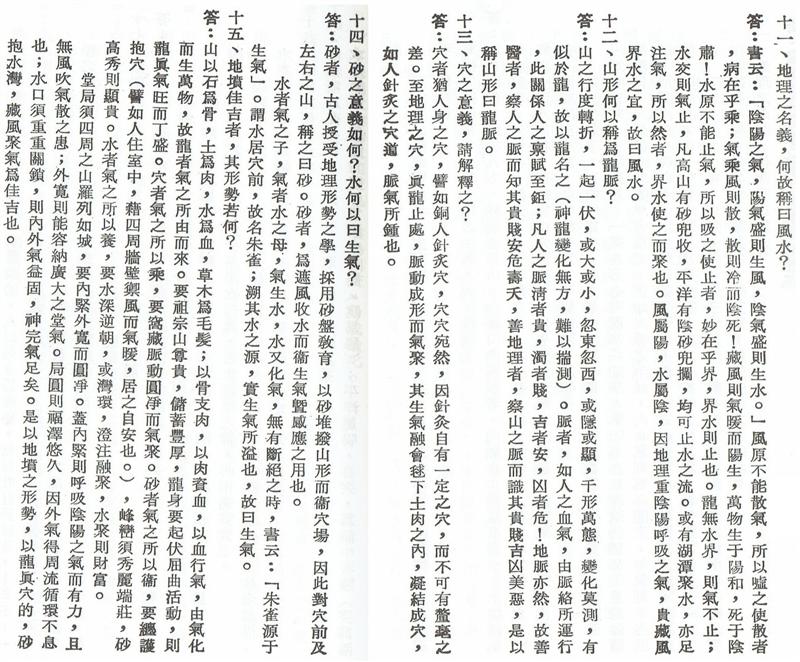 十一、地理之名義，何故稱曰風水？
答：書云：「陰陽之氣，陽氣盛則生風，陰氣盛則生水。」風原不能散氣，所以噓之使散者
，病在乎乘；氣乘風則散，散則冷而陰死！藏風則氣暖而陽生，萬物生于陽和，死于陰
肅！水原不能止氣，所以吸之使止者，妙在乎界，界水則止也。龍無水界，則氣不止；
水交則氣止，凡高山有砂兜收，平洋有陰砂兜攔，均可止水之流。或有湖潭聚水，亦足
注氣，所以然者，界水使之而聚也。風屬陽，水屬陰，因地理重陰陽呼吸之氣，貴藏風
界水之宜，故曰風水。
十二、山形何以稱爲龍脈？
答：山之行度轉折，一起一伏，或大或小，忽東忽西，或隱或顯，千形萬態，變化莫測，有
似於龍，故以龍名之（神龍變化無方，難以揣測）。脈者，如人之血氣，由脈絡所運行
，此關係人之禀賦至鉅；凡人之脈清者貴，濁者賤，吉者安，凶者危！地脈亦然，故善
醫者，察人之脈而知其貴賤安危壽夭，善地理者，察山之脈而識其貴賤吉凶美惡，是以
稱山形曰龍脈。
十三、穴之意義，請解釋之？
答：穴者猶人身之穴，譬如銅人針灸穴，穴穴宛然，因針灸自有一定之穴，而不可有釐毫之
差。至地理之穴，眞龍止處，脈動成形而氣聚，其生氣融會毬下土肉之內，凝結成穴，
如人針灸之穴道，脈氣所鍾也。
十四、砂之意義如何？水何以曰生氣？
答：砂者，古人授受地理形勢之學，採用砂盤教育，以砂堆撥山形而衞穴場，因此對穴前及
左右之山，稱之曰砂。砂者，爲遮風收水而衞生氣暨感應之用也。
水者氣之子，氣者水之母，氣生水，水又化氣，無有斷絕之時，書云：「朱雀源于
生氣」。謂水居穴前，故名朱雀；溯其水之源，實生氣所溢也，故曰生氣。
十五、地墳佳吉者，其形勢若何？
答：山以石爲骨，土爲肉，水爲血，草木爲毛髮；以骨支肉，以肉賚血，以血行氣，由氣化
而生萬物，故龍者氣之所由而來。要祖宗山尊貴，儲蓄豐厚，龍身要起伏屈曲活動，則
龍眞氣旺而丁盛。穴者氣之所以乘，要窩藏脈動圓淨而氣聚。砂者氣之所以衞，要纏護
抱穴（譬如人住室中，藉四周牆壁禦風而氣暖，居之自安也。），峰巒須秀麗端莊，砂
高秀則顯貴。水者氣之所以養，要水深逆朝，或灣環，澄注融聚，水聚則財富。
堂局須四周之山羅列如城，要內緊外寬而圓淨。蓋內緊則呼吸陰陽之氣而有力，且
無風吹氣散之患；外寬則能容納廣大之堂氣。局圓則福澤悠久，因外氣得周流循環不息
也；水口須重重關鎖，則內外氣益固，神完氣足矣。是以地墳之形勢，以龍眞穴的，砂
抱水灣，藏風聚氣爲佳吉也。